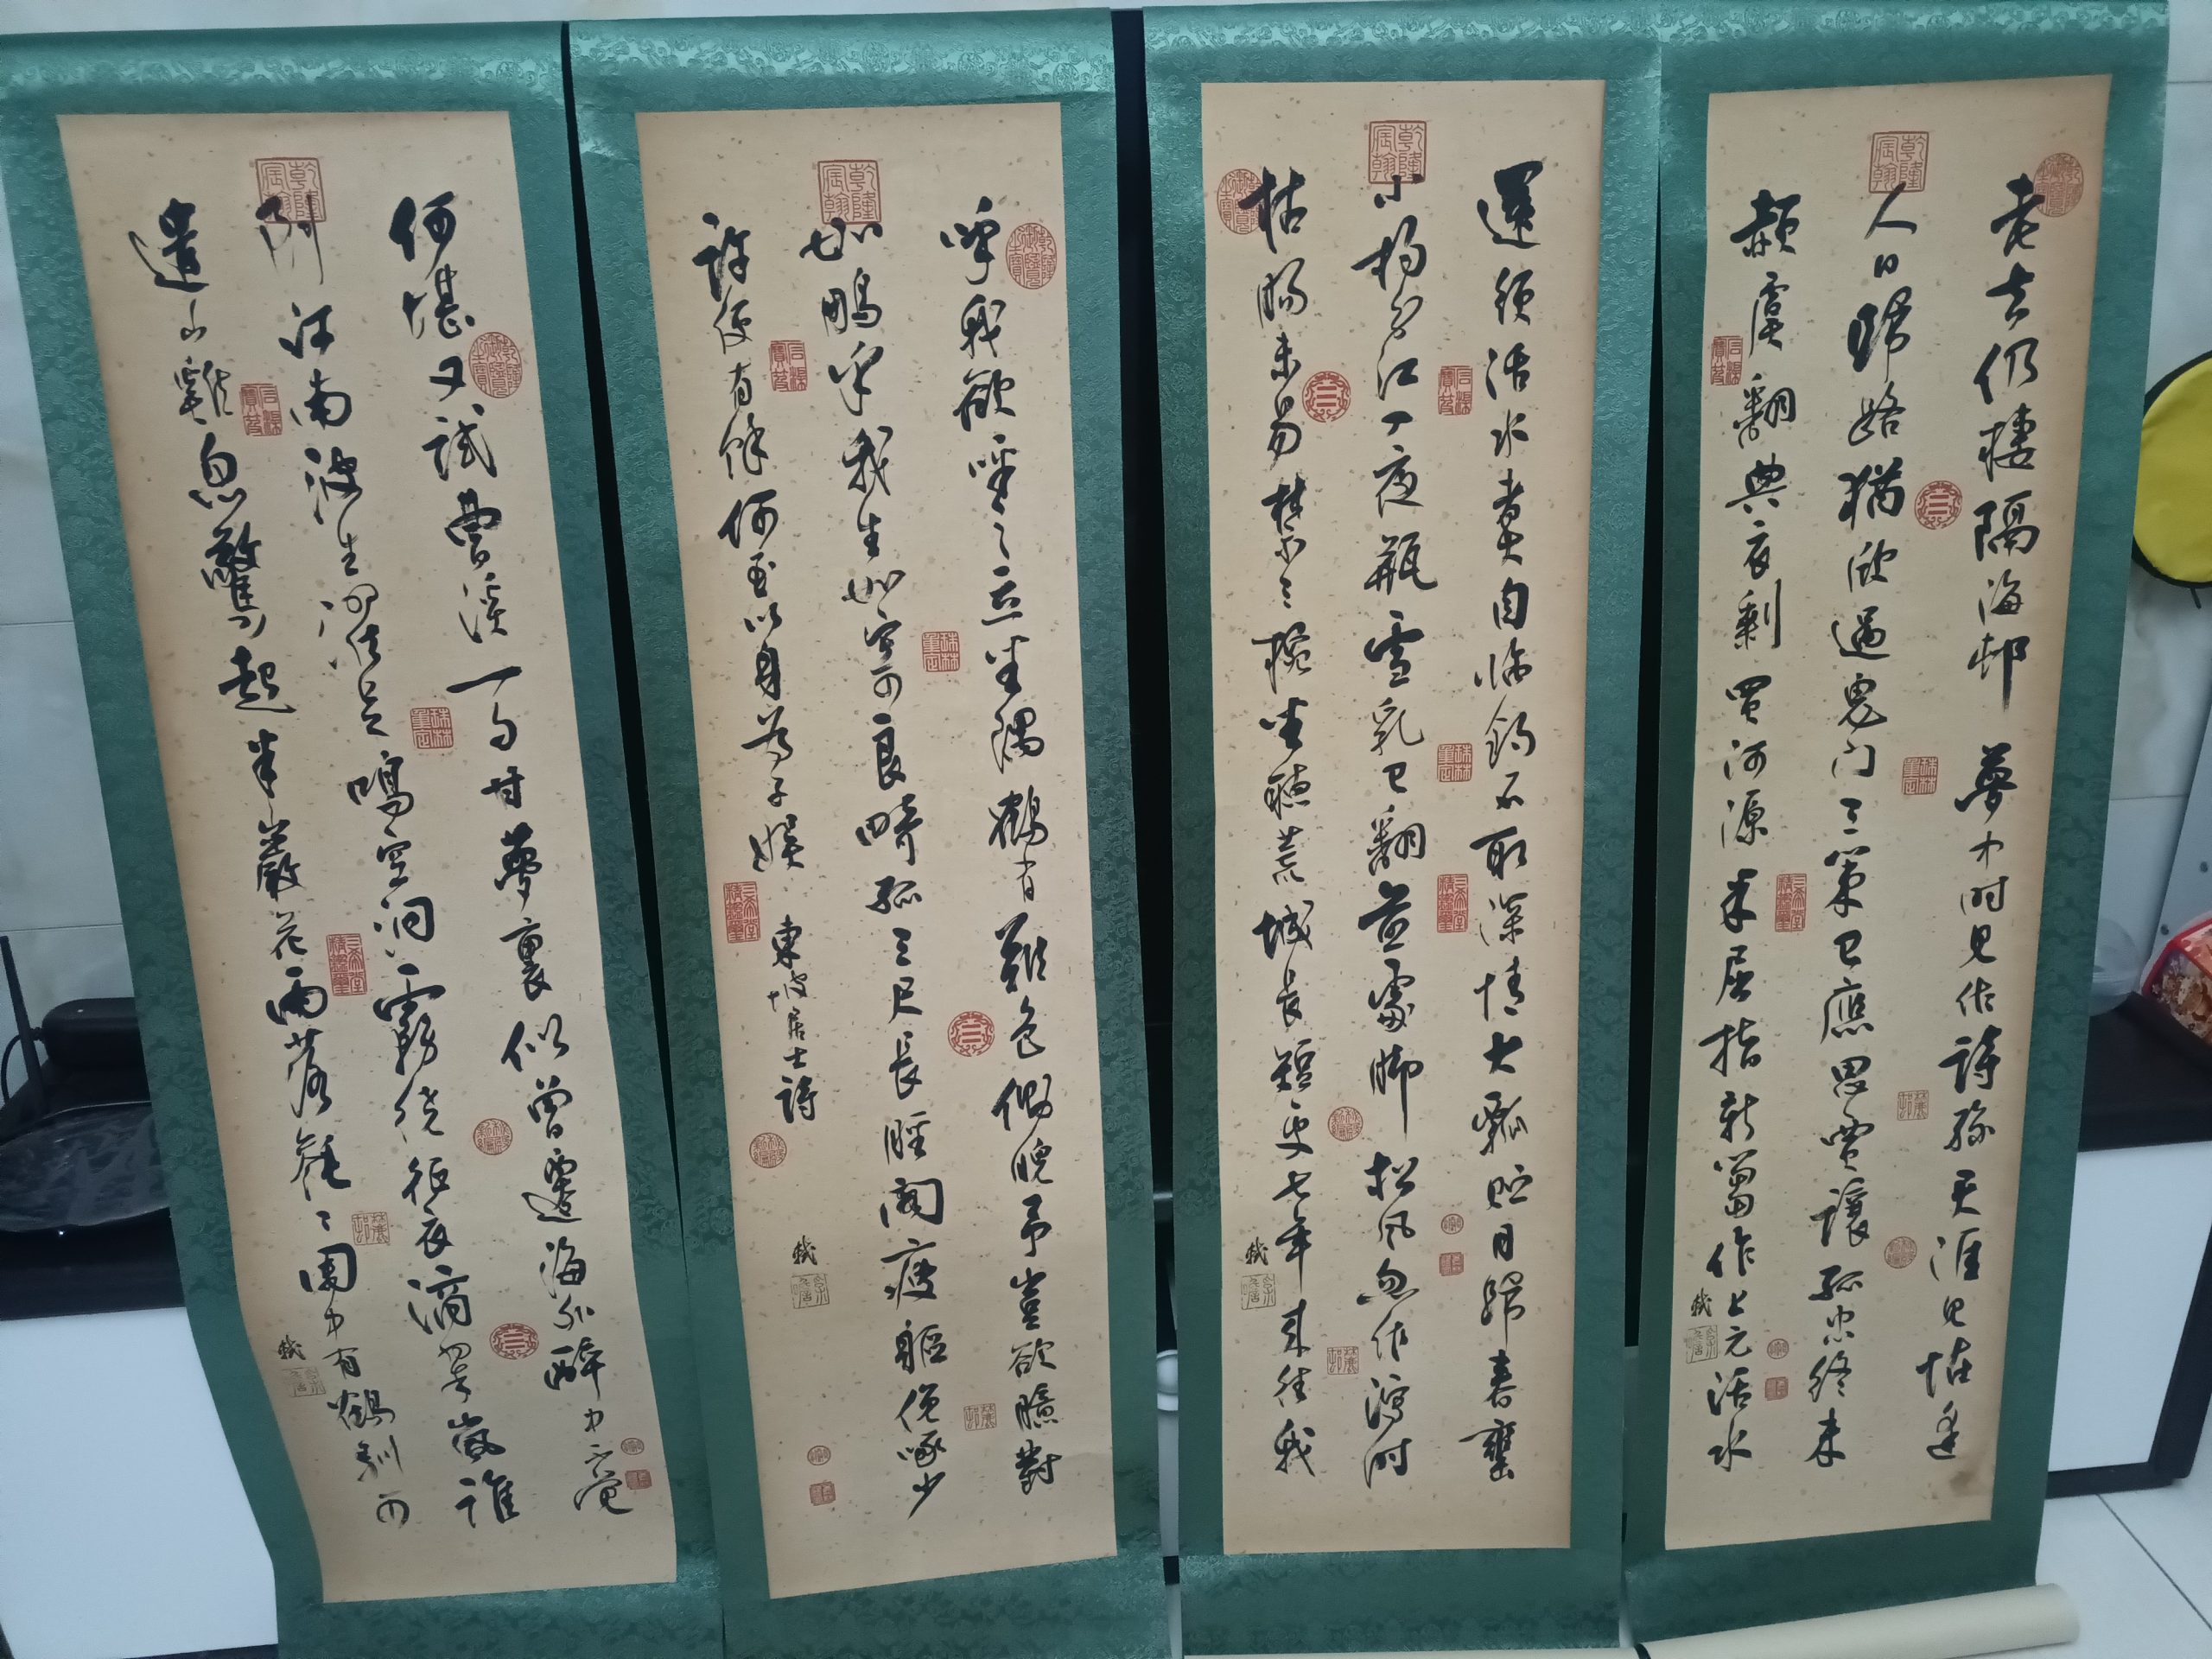 老去仍棲隔海邨夢中時見作詩孫天涯已慣逢
人日歸路猶欣過鬼門三策已應思賈讓孤忠終未
赦虞翻典衣剩買河源米屈指新篘作上元活水
軾
乾隆宸翰
還須活水煮自臨釣石取深情大瓢貯月歸春甕
小杓分江入夜瓶雪乳已翻煎處腳松風忽作瀉時
枯腸未易禁三椀坐聽荒城長短更七年來往我
軾
乾隆宸翰
呼我欲呼之立坐隅鶴有難色側睨予豈欲臆對
如鵬乎我生如寄可良畸孤三尺長脛閣瘦軀俛啄少
許便有餘何至以身為子娛東坡居士詩
軾
乾隆宸翰
何堪又試曹溪一勺甘夢裏似曾遷海外醉中不覺
到江南波生濯足鳴空澗霧繞征衣滴翠嵐誰
遣山雞忽驚起半巖花雨落毿毿園中有鶴馴可
軾
乾隆宸翰